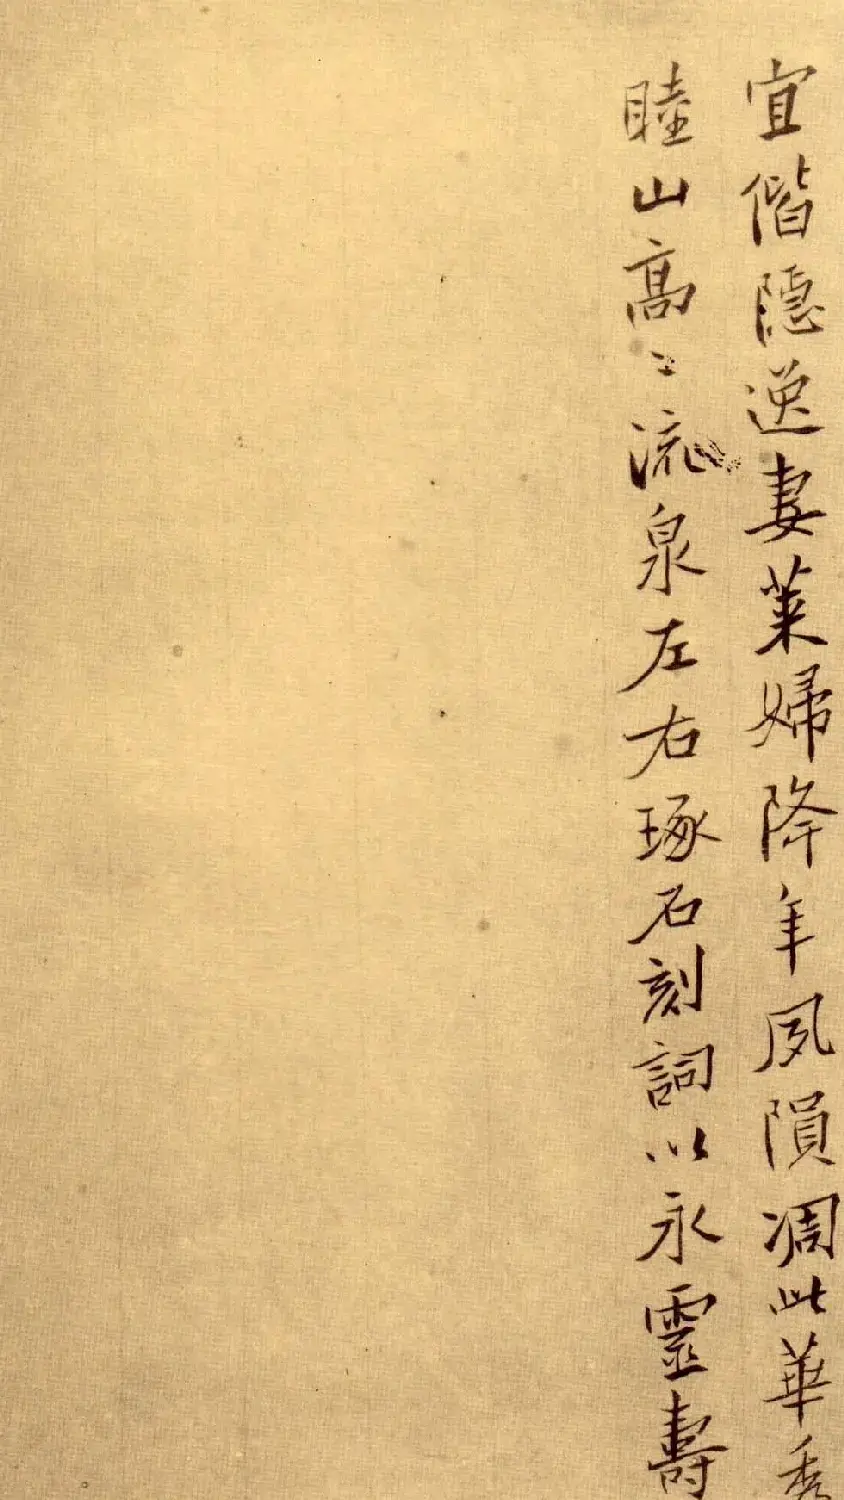 宜偕隱逸妻萊婦降年夙隕凋此華秀
睦山高〻流泉左右琢石刻詞以永靈壽